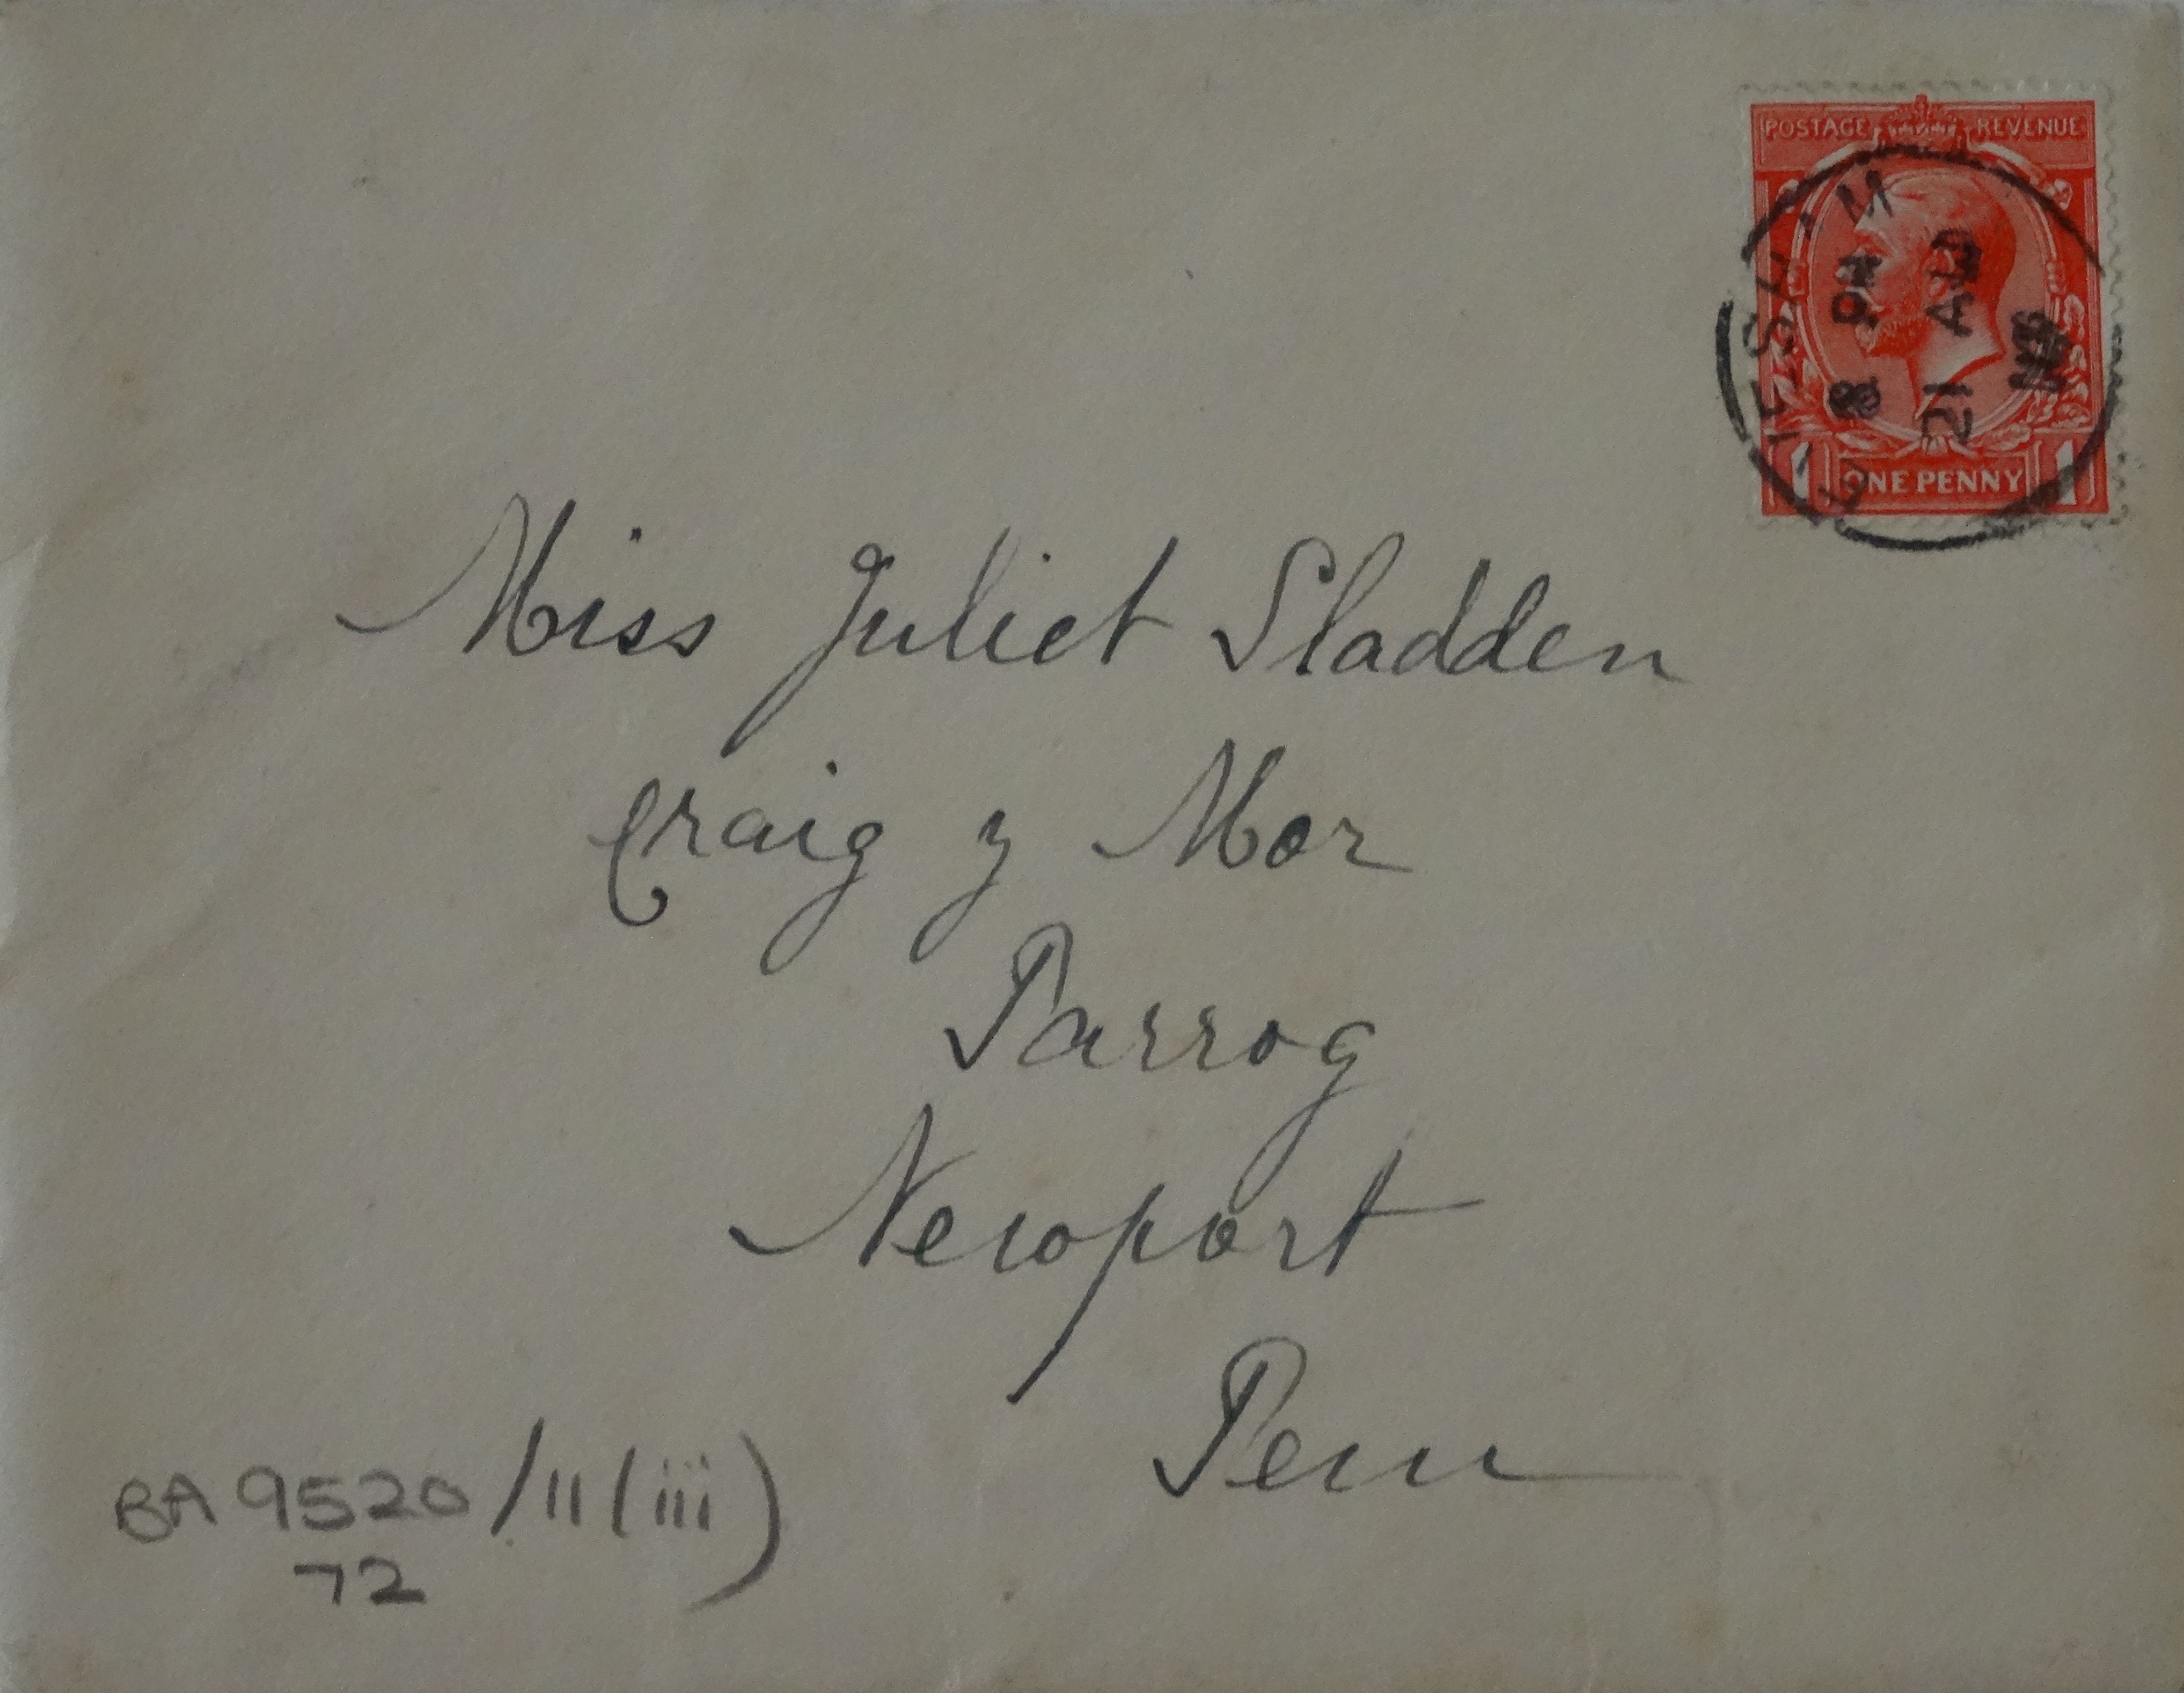 POSTAGE REVENUE
8 PM
21 AU
16
1 ONE PENNY 1
Miss Juliet Sladden
Craig y Mor
Parrog
Newport
Pem
BA 9520/11(iii)
72